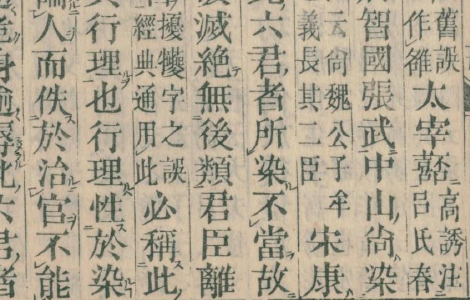 舊誤
作雒
太宰嚭
高誘注
呂氏春
智國張武中山尚染
云尚魏公子牟
義長其二臣
宋康
六君者所染不當故
滅絕無後類君臣離
擾字之誤
經典通用此
必稱此
行理也行理性於染
人而佚於治官不能
身逾辱此六君者